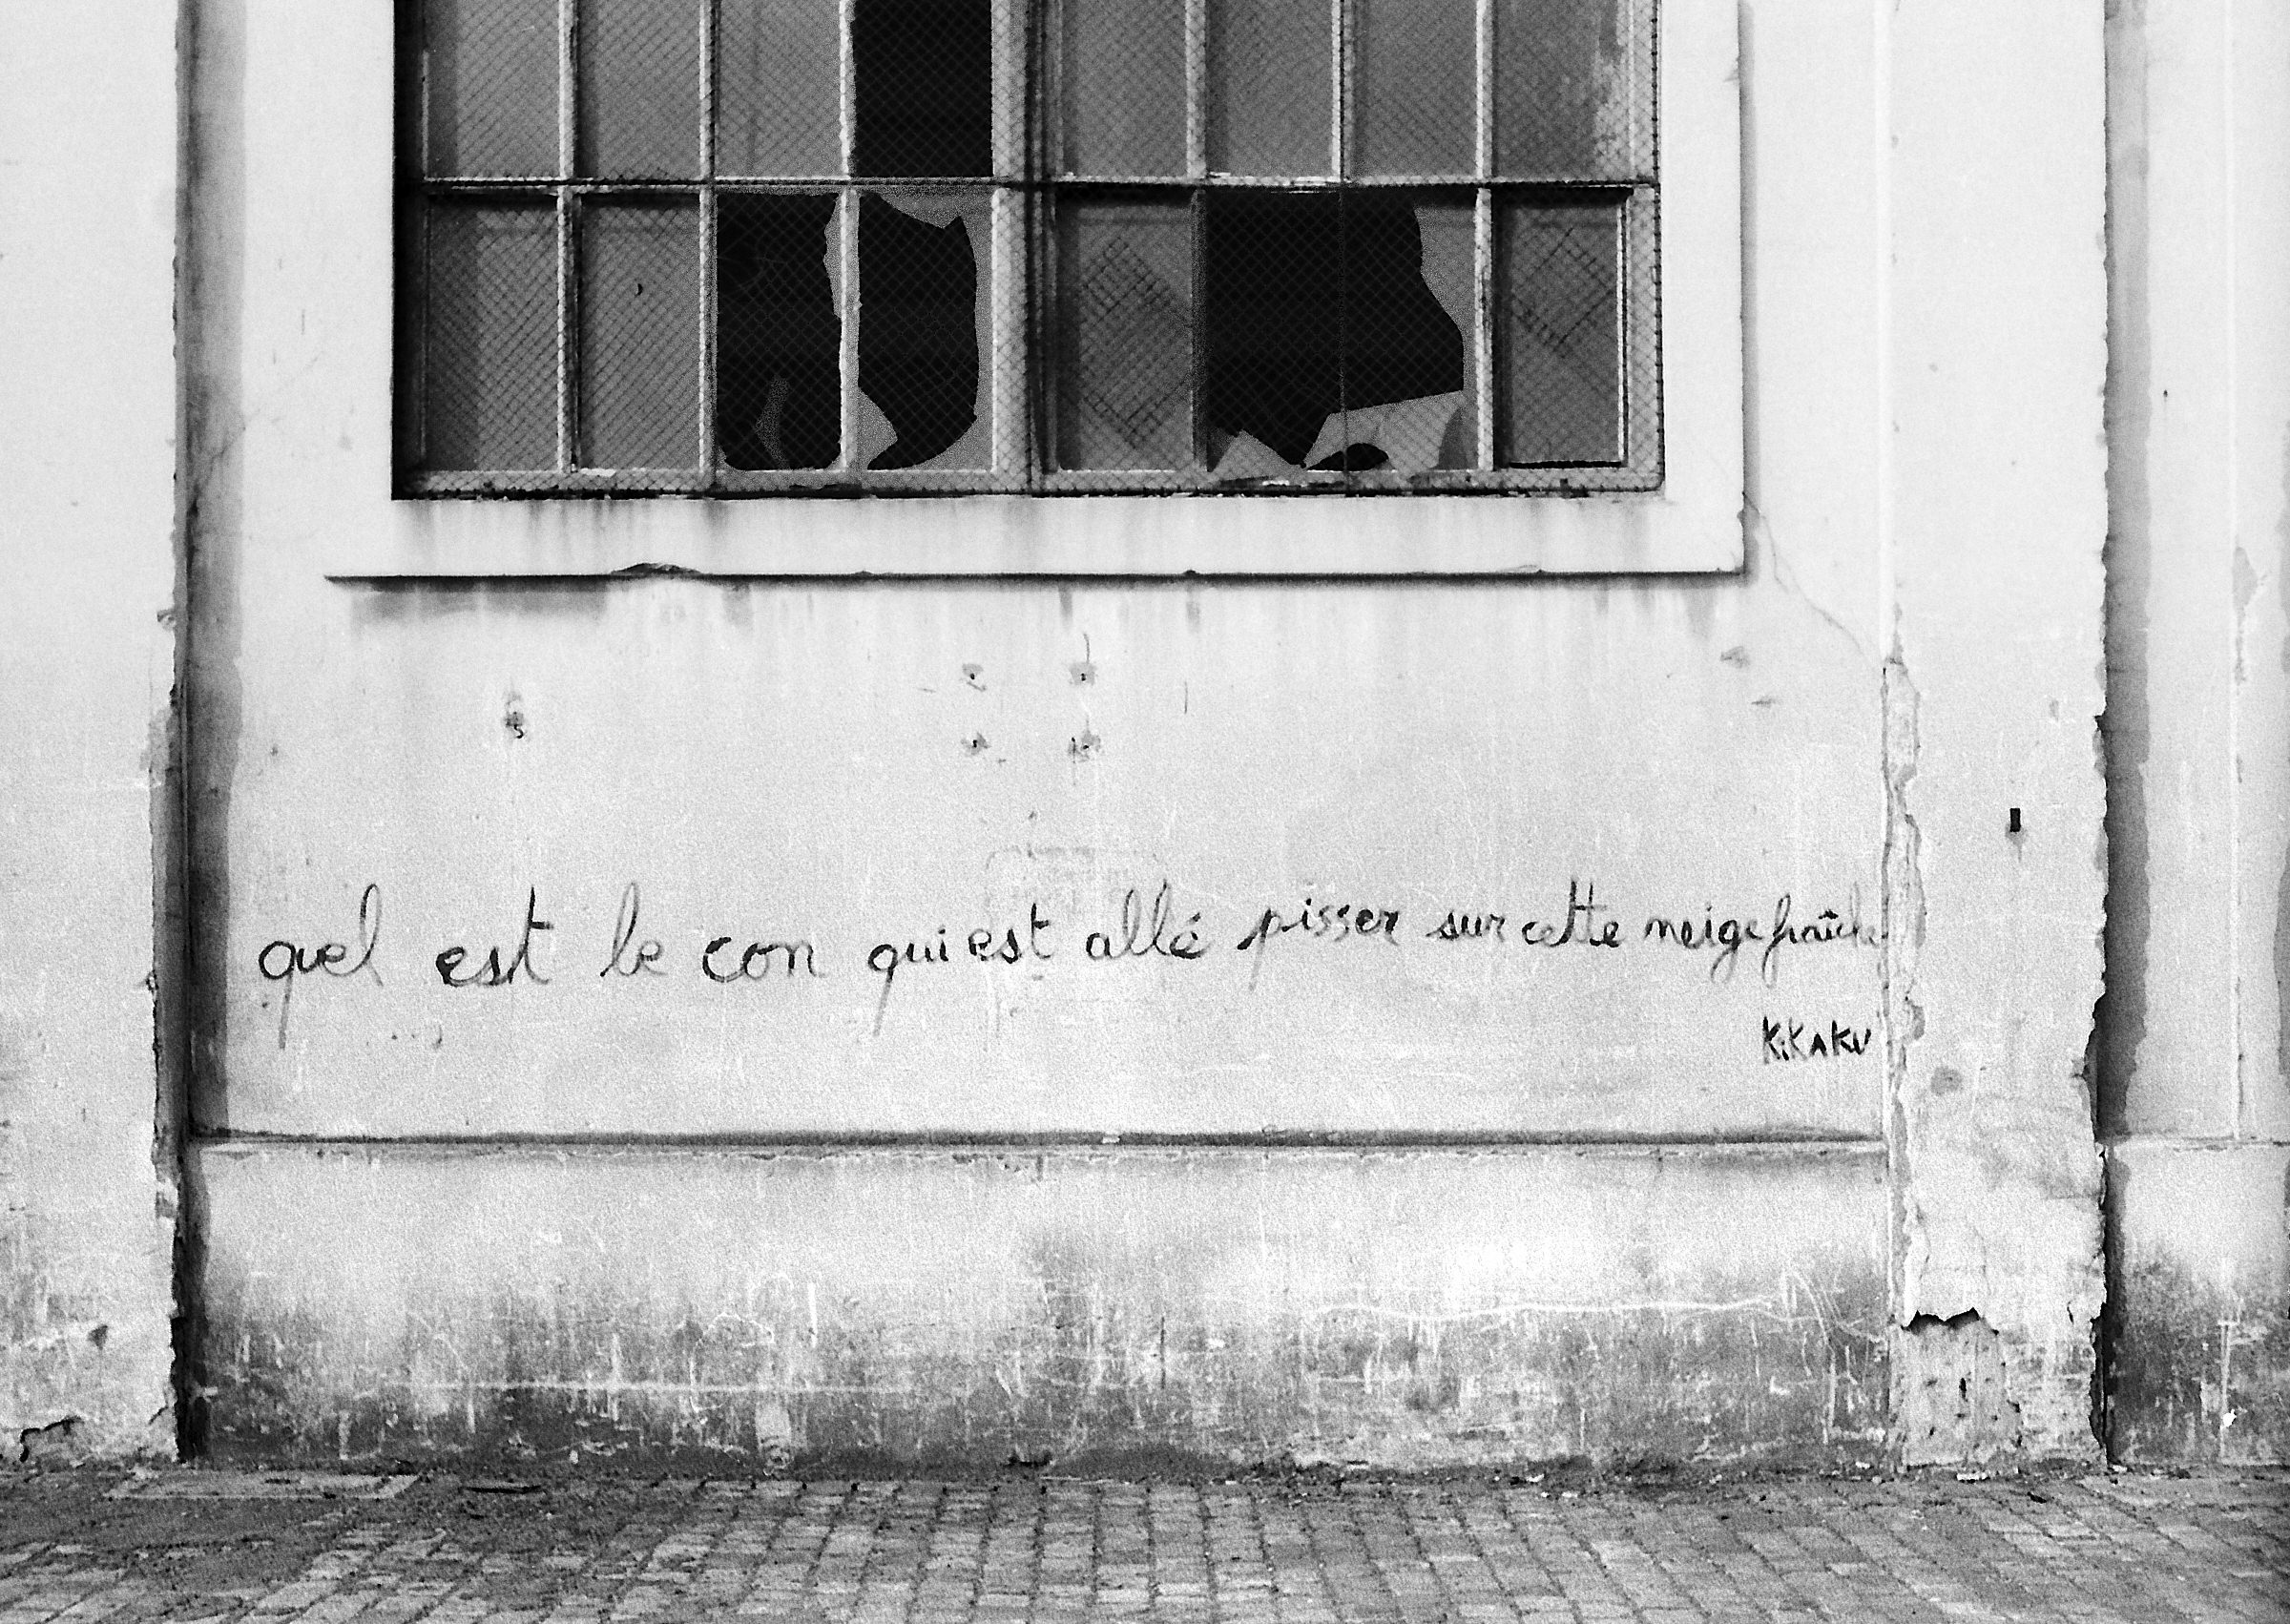 quel est le con qui est allé pisser sur cette neige fraîche
KiKAKU